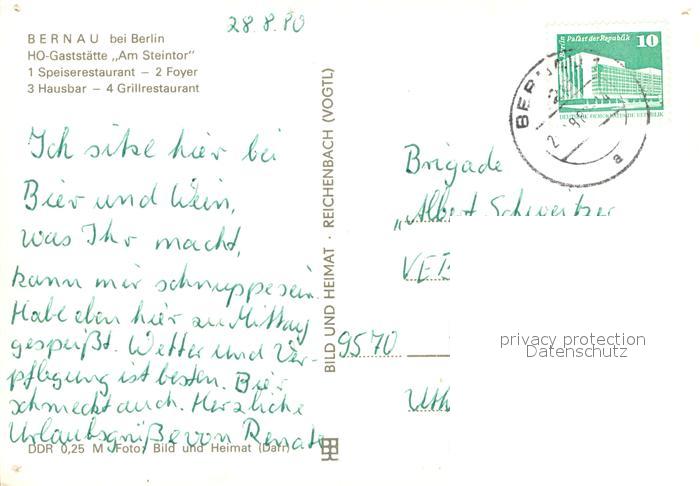 28.8.80
BERNAU bei Berlin
HO-Gaststätte „Am Steintor"
1 Speiserestaurant – 2 Foyer
3 Hausbar – 4 Grillrestaurant
Ich sitze hier bei
Bier und Wein,
was Ihr macht,
kann mir schnuppe sein.
Habe eben hier zu Mittag
gespeißt. Wetter und Ver-
pflegung ist besten. Bier
schmeckt auch. Herzliche
Urlaubsgrüße von Renate
DDR 0,25 M Foto: Bild und Heimat (Darr)
BILD UND HEIMAT · REICHENBACH (VOGTL)
Berlin Palast der Republik 10
DEUTSCHE DEMOKRATISCHE REPUBLIK
a
Brigade
„Albert Schweitzer
VEB
9570
privacy protection
Datenschutz